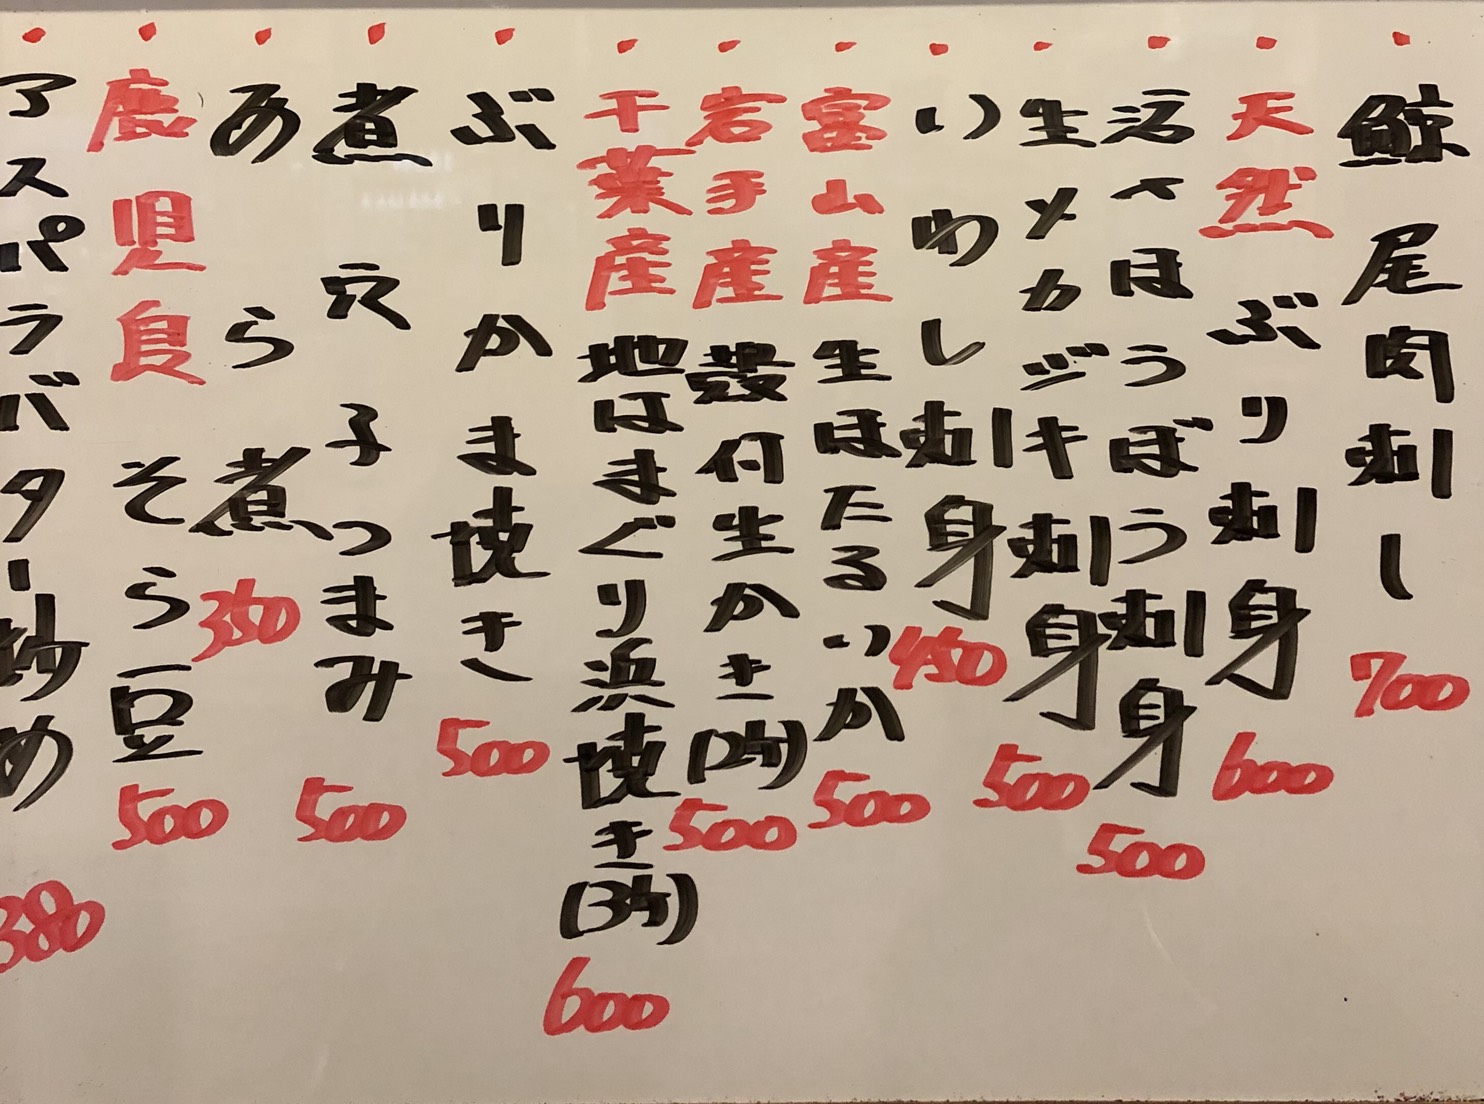 鯨尾肉刺し 700
天然ぶり刺身 600
活〆ほうぼう刺身 500
生メカジキ刺身 500
いわし刺身 450
富山産生ほたるいか 500
岩手産殻付生かき(2ケ) 500
千葉産地はまぐり浜焼き(3ケ) 600
ぶりかま焼き 500
煮穴子つまみ 500
あら煮 350
鹿児島そら豆 500
アスパラバター炒め 380